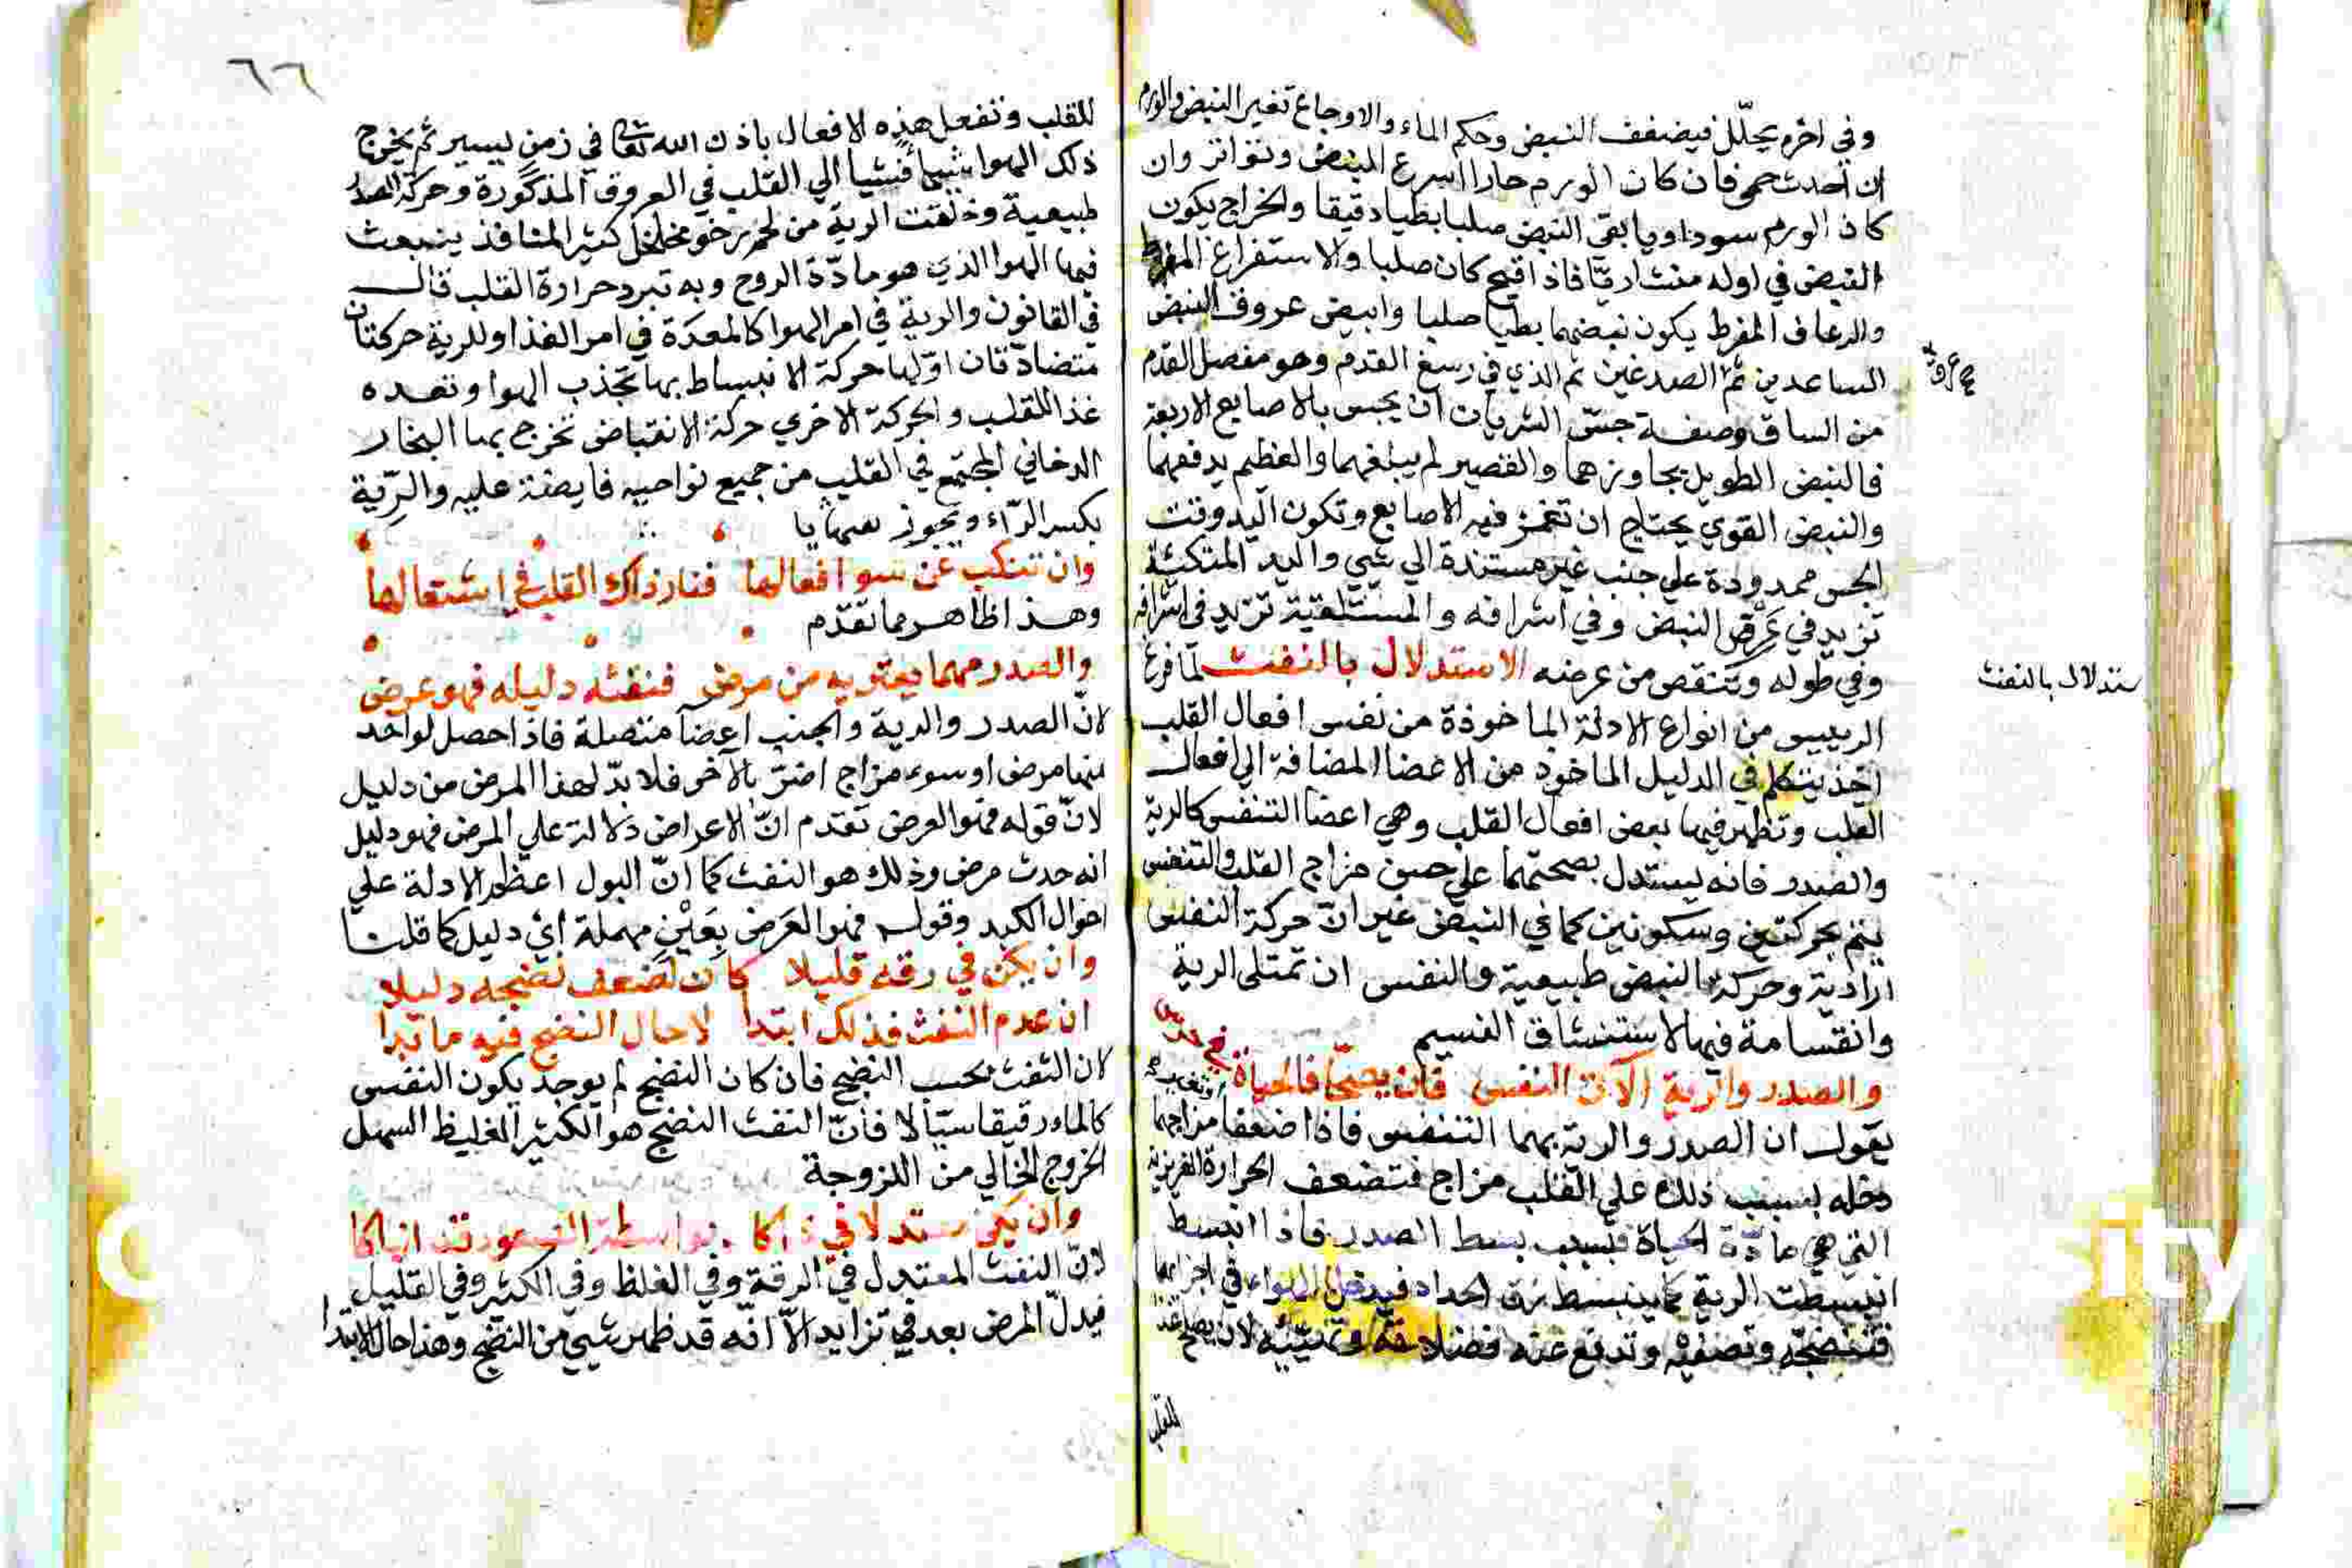 وفي اخره يحلّل فيضفف النبض وحكم الماء والاوجاع تغير النبض والورم
ان أحدث حمى فان كان الورم حارا اسرع النبض وتواتر وان
كان الورم سوداويا بقى النبض صلبا بطيا دقيقا والخراج يكون
النبض في اوله منشاريّا فاذا اقيح كان صلبا والاستفراغ المفرط
والرعاف المفرط يكون نبضهما بطيا صلبا وابيض عروق النبض
الساعدين ثم الصدغين ثم الذي في رسغ القدم وهو مفصل القدم
من الساق وصفة جسّ الشريان ان يجس بالاصابع الاربعة
فالنبض الطويل يجاوزهما والقصير لم يبلغهما والعظيم يدفعهما
والنبض القوي يحتاج ان تغمز فيه الاصابع وتكون اليد وقت
الجس ممدودة علي جنب غير مستندة الي شي واليد المتكئة
تزيد في عرض النبض وفي اشرافه والمستلقية تزيد في اشرافه
وفي طوله وتنقص من عرضه الاستدلال بالنفث لمّا فرغ
ستدلال بالنفث
الرييس من انواع الادلة الماخوذة من نفس افعال القلب
اخذ يتكلم في الدليل الماخوذ من الاعضا المضافة الي افعال
القلب وتظهر فيها بعض افعال القلب وهي اعضا التنفس كالرية
والصدر فانه يستدل بصحتهما علي حسن مزاج القلب والتنفس
يتم بحركتين وسكونين كما في النبض غير انّ حركة النفس
ارادية وحركة النبض طبيعية والنفس ان تمتلى الرية
وانقسامة فيها لاستنشاق النسيم
والصدر والرية الآت النفس فان يصحّا فالحياة
يقول ان الصدر والرية بهما التنفس فاذا ضعفا مزاجهما
دخله بسبب ذلك علي القلب مزاج فتضعف الحرارة الغريزية
التي هي مادّة الحياة فبسبب بسط الصدر فاذا انبسط
انبسطت الرية كما ينبسط زق الحداد فيدخل الهواء في اجزايها
فتنضجه وتصفيه وتدفع عنه فضلا وتهيّئه لان يصلح غذا
للقلب
٦٦
للقلب وتفعل هذه الافعال باذن الله تعالى في زمن يسير ثم يخرج
ذلك الهوا شيا فشيا الي القلب في العروق المذكورة وحركة الصدر
طبيعية وخلقت الرية من لحم رخو مخلخل كثير المنافذ ينبعث
فيها الهوا الذي هو مادّة الروح وبه تبرد حرارة القلب قال
في القانون والرية في امر الهوا كالمعدة في امر الغذا وللرية حركتان
متضادّتان اوّلها حركة الانبساط بها تجذب الهوا وتعده
غذا للقلب والحركة الاخري حركة الانقباض تخرج بها البخار
الدخاني المجتمع في القلب من جميع نواحيه فايضة عليه والرّية
بكسر الرّاء ويجوز
وان تنكب عن سو افعالها فنار ذاك القلب في اشتعالها
وهذا ظاهر مما تقدّم
والصدر مهما يحتويه من مرض فنفثه دليله فهو عرض
لانّ الصدر والرية والجنب اعضا متصلة فاذا حصل لواحد
منها مرض او سوء مزاج اضرّ بالآخر فلا بدّ لهذا المرض من دليل
لانّ قوله فهو العرض تقدم انّ الاعراض دلالة علي المرض فهو دليل
انه حدث مرض وذلك هو النفث كما انّ البول اعظم الادلة علي
احوال الكبد وقوله فهو العَرَض بِعَيْنٍ مهملة أي دليل كما قلنا
وان يكن في رقه قليلا كان لضعف نضجه دليلا
ان عدم النفث فذلك ابتدا لا حال النضج فيه ما تبدا
لان النفث بحسب النضج فان كان النضج لم يوجد يكون النفس
كالماء رقيقا سيّالا فانّ النفث النضج هو الكثير الغليظ السهل
الخروج الخالي من اللزوجة
لانّ النفث المعتدل في الرقة وفي الغلظ وفي الكثير وفي القليل
فيدلّ المرض بعد في تزايد الاّ انّه قد ظهر شي من النضج وهذا حال الابتدا